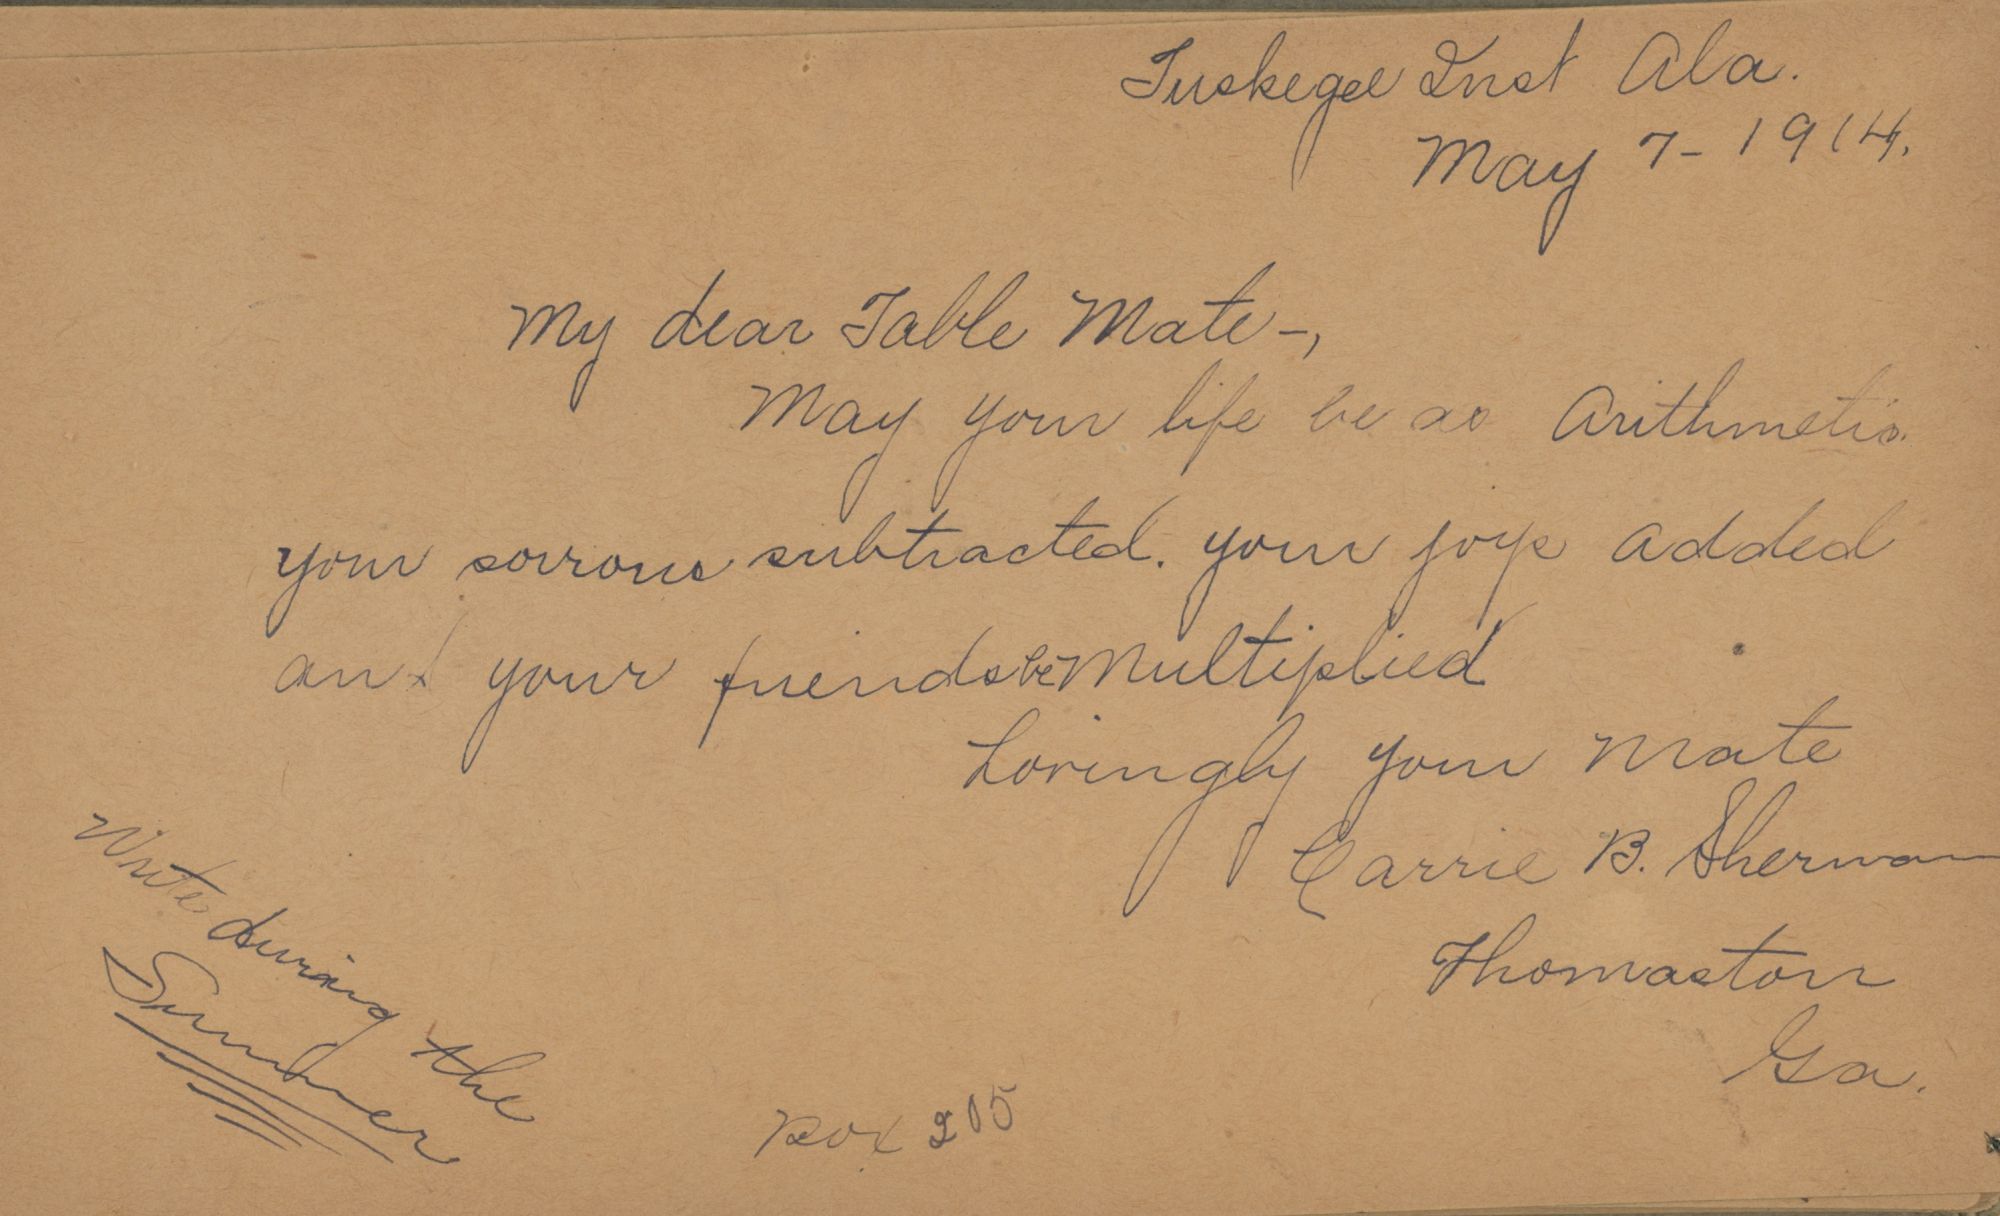 Tuskegee Inst Ala.
May 7-1914.
My dear Table Mate-,
May your life be as Arithmetic.
your sorrows subtracted. your joys added
and your friends be Multiplied
Lovingly your Mate
Carrie B. Sherman
Thomaston
Ga.
Write during the
Summer
Box 205